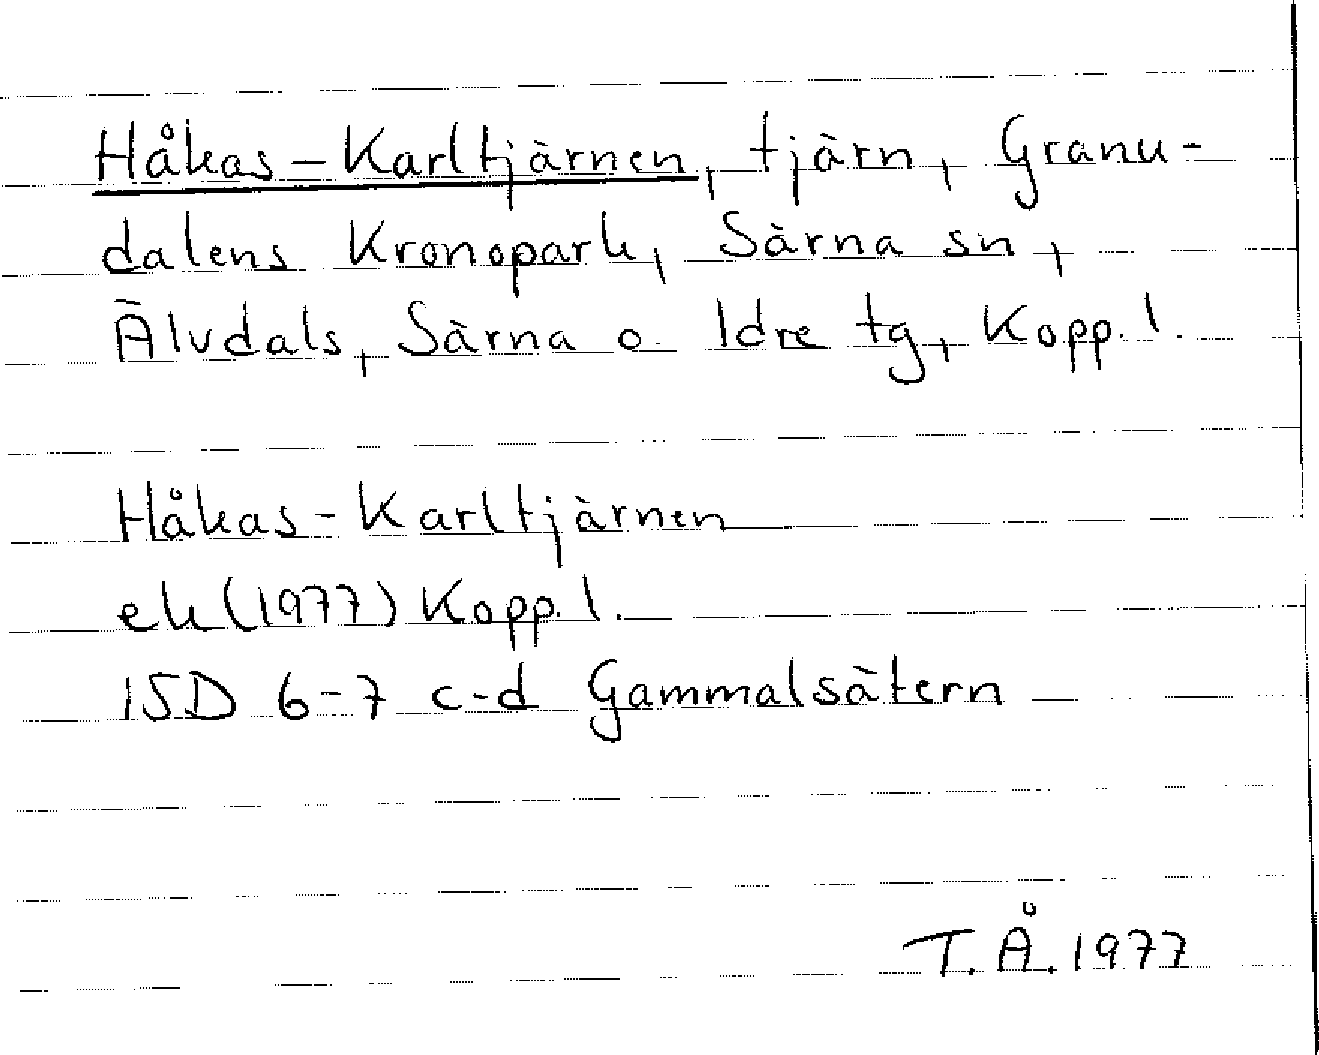 Håkas-Karltjärnen, tjärn, Granu-
dalens Kronopark, Särna sn,
Älvdals, Särna o. Idre tg, Kopp. l.
Håkas-Karltjärnen
ek (1977) Kopp. l.
15D 6-7 c-d Gammalsätern
T. Å. 1977